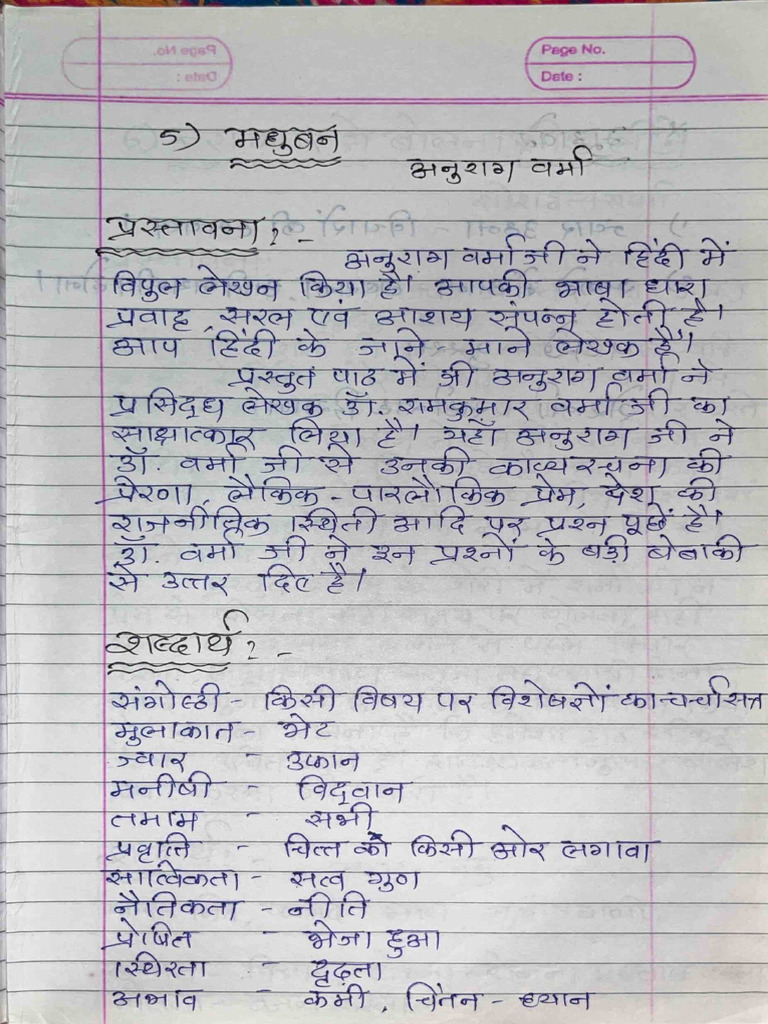 Page No.
Date :
5) मधुबन
अनुराग वर्मा
प्रस्तावना ? -
अनुराग वर्मा जी ने हिंदी में
विपुल लेखन किया है। आपकी भाषा धारा
प्रवाह, सरल एवं आशय संपन्न होती है।
आप हिंदी के जाने - माने लेखक है।
प्रस्तुत पाठ में श्री अनुराग वर्मा ने
प्रसिद्ध लेखक डॉ. रामकुमार वर्मा जी का
साक्षात्कार लिया है। यहाँ अनुराग जी ने
डॉ. वर्मा जी से उनकी काव्य रचना की
प्रेरणा, लौकिक - पारलौकिक प्रेम, देश की
राजनीतिक स्थिती आदि पर प्रश्न पूछें है।
डॉ. वर्मा जी ने इन प्रश्नों के बड़ी बेबाकी
से उत्तर दिए है।
शब्दार्थ ? -
संगोष्ठी - किसी विषय पर विशेषज्ञों का चर्चासत्र
मुलाकात - भेट
ज्वार - उफान
मनीषी - विद्वान
तमाम - सभी
प्रवृत्ति - चित्त का किसी ओर लगावा
सात्विकता - सत्व गुण
नैतिकता - नीति
प्रेषित - भेजा हुआ
स्थिरता - दृढ़ता
अभाव - कमी, चिंतन - ध्यान